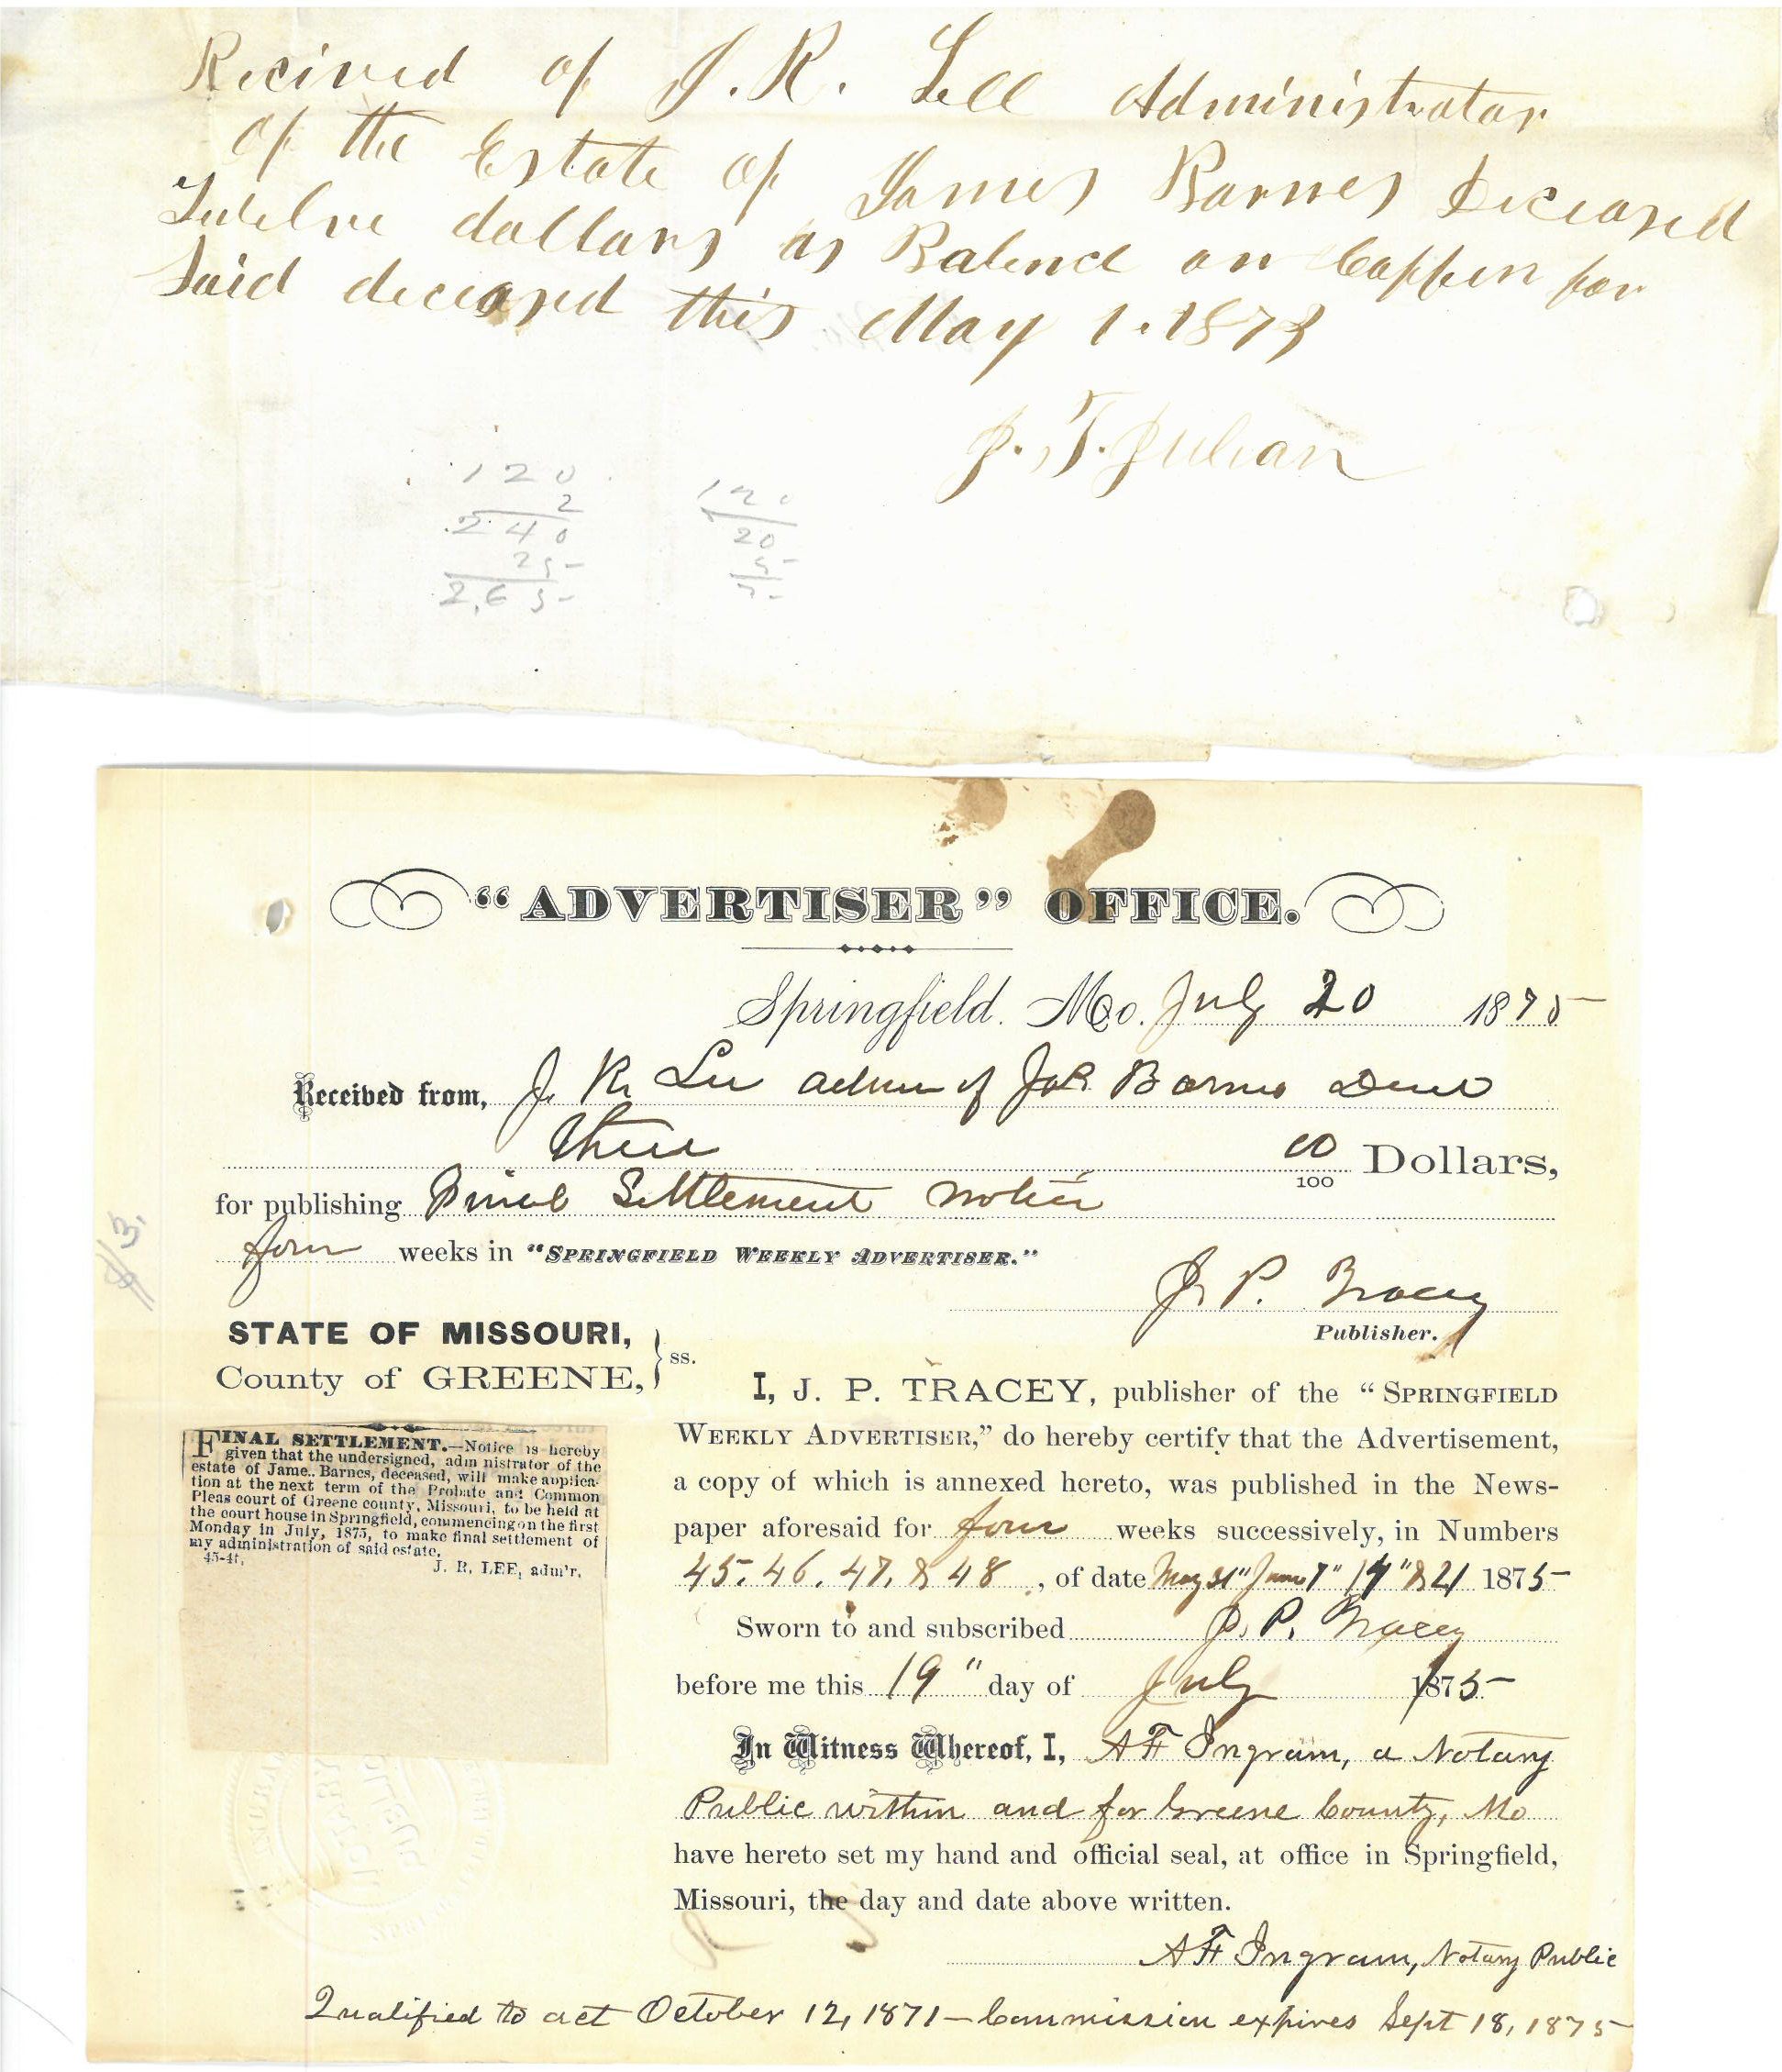 Recived of J. R. Lee Administrator
of the Estate of James Barnes Deceased
Twelve dollars as Balenc on Coffin for
Said deceased this May 1. 1873
J. T. Julian
120
2
240
25
265
120
20
5
"ADVERTISER" OFFICE.
Springfield. Mo. July 20 1875
Received from, J. R. Lee admr of Jas. Barnes Decd
three 00/100 Dollars,
for publishing Final Settlement notice
four weeks in "SPRINGFIELD WEEKLY ADVERTISER."
$3.
J. P. Tracey
Publisher.
STATE OF MISSOURI,
County of GREENE, } ss.
FINAL SETTLEMENT.—Notice is hereby
given that the undersigned, adm nistrator of the
estate of Jame.. Barnes, deceased, will make applica-
tion at the next term of the Probate and Common
Pleas court of Greene county, Missouri, to be held at
the court house in Springfield, commencing on the first
Monday in July, 1875, to make final settlement of
my administration of said estate.
45-4t. J. R. LEE, adm'r.
I, J. P. TRACEY, publisher of the "SPRINGFIELD
WEEKLY ADVERTISER," do hereby certify that the Advertisement,
a copy of which is annexed hereto, was published in the News-
paper aforesaid for four weeks successively, in Numbers
45. 46. 47. & 48, of date May 31" June 7" 14" & 21 1875
Sworn to and subscribed J. P. Tracey
before me this 19" day of July 1875
In Witness Whereof, I, A F Ingram, a Notary
Public within and for Greene County, Mo
have hereto set my hand and official seal, at office in Springfield,
Missouri, the day and date above written.
A F Ingram, Notary Public
Qualified to act October 12, 1871 — Commission expires Sept 18, 1875